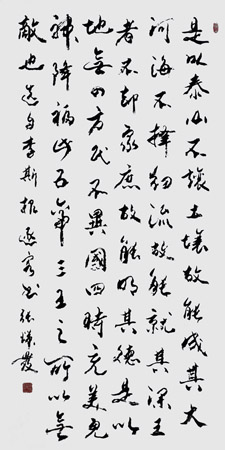 是以泰山不讓土壤故能成其大
河海不擇細流故能就其深王
者不却衆庶故能明其德是以
地無四方民不異國四時充美鬼
神降福此五帝三王之所以無
敵也選自李斯逐客書張